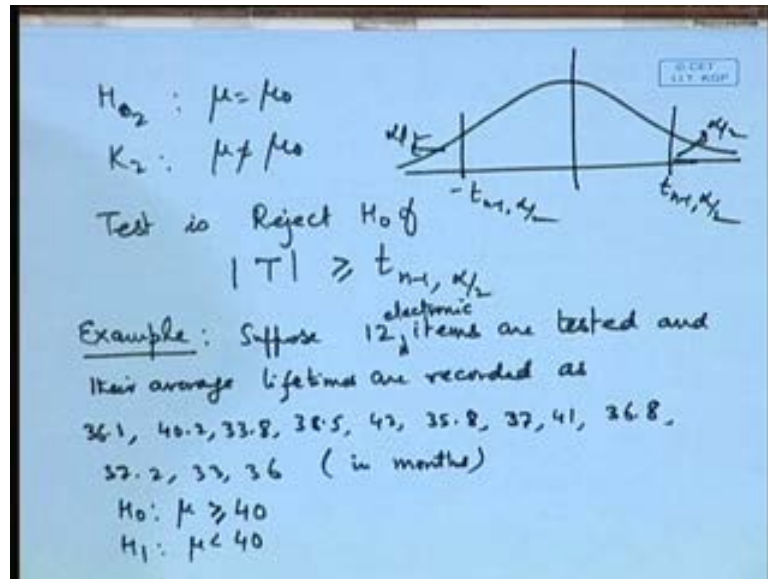 H₀₂ : μ = μ₀
K₂ : μ ≠ μ₀
α/2
α/2
-t_{n-1, α/2}
t_{n-1, α/2}
Test is Reject H₀ if
|T| ≥ t_{n-1, α/2}
Example : Suppose 12 electronic items are tested and
their average lifetimes are recorded as
36.1, 40.2, 33.8, 38.5, 42, 35.8, 37, 41, 36.8,
37.2, 33, 36 (in months)
H₀ : μ ≥ 40
H₁ : μ < 40
© CET
I.I.T. KGP